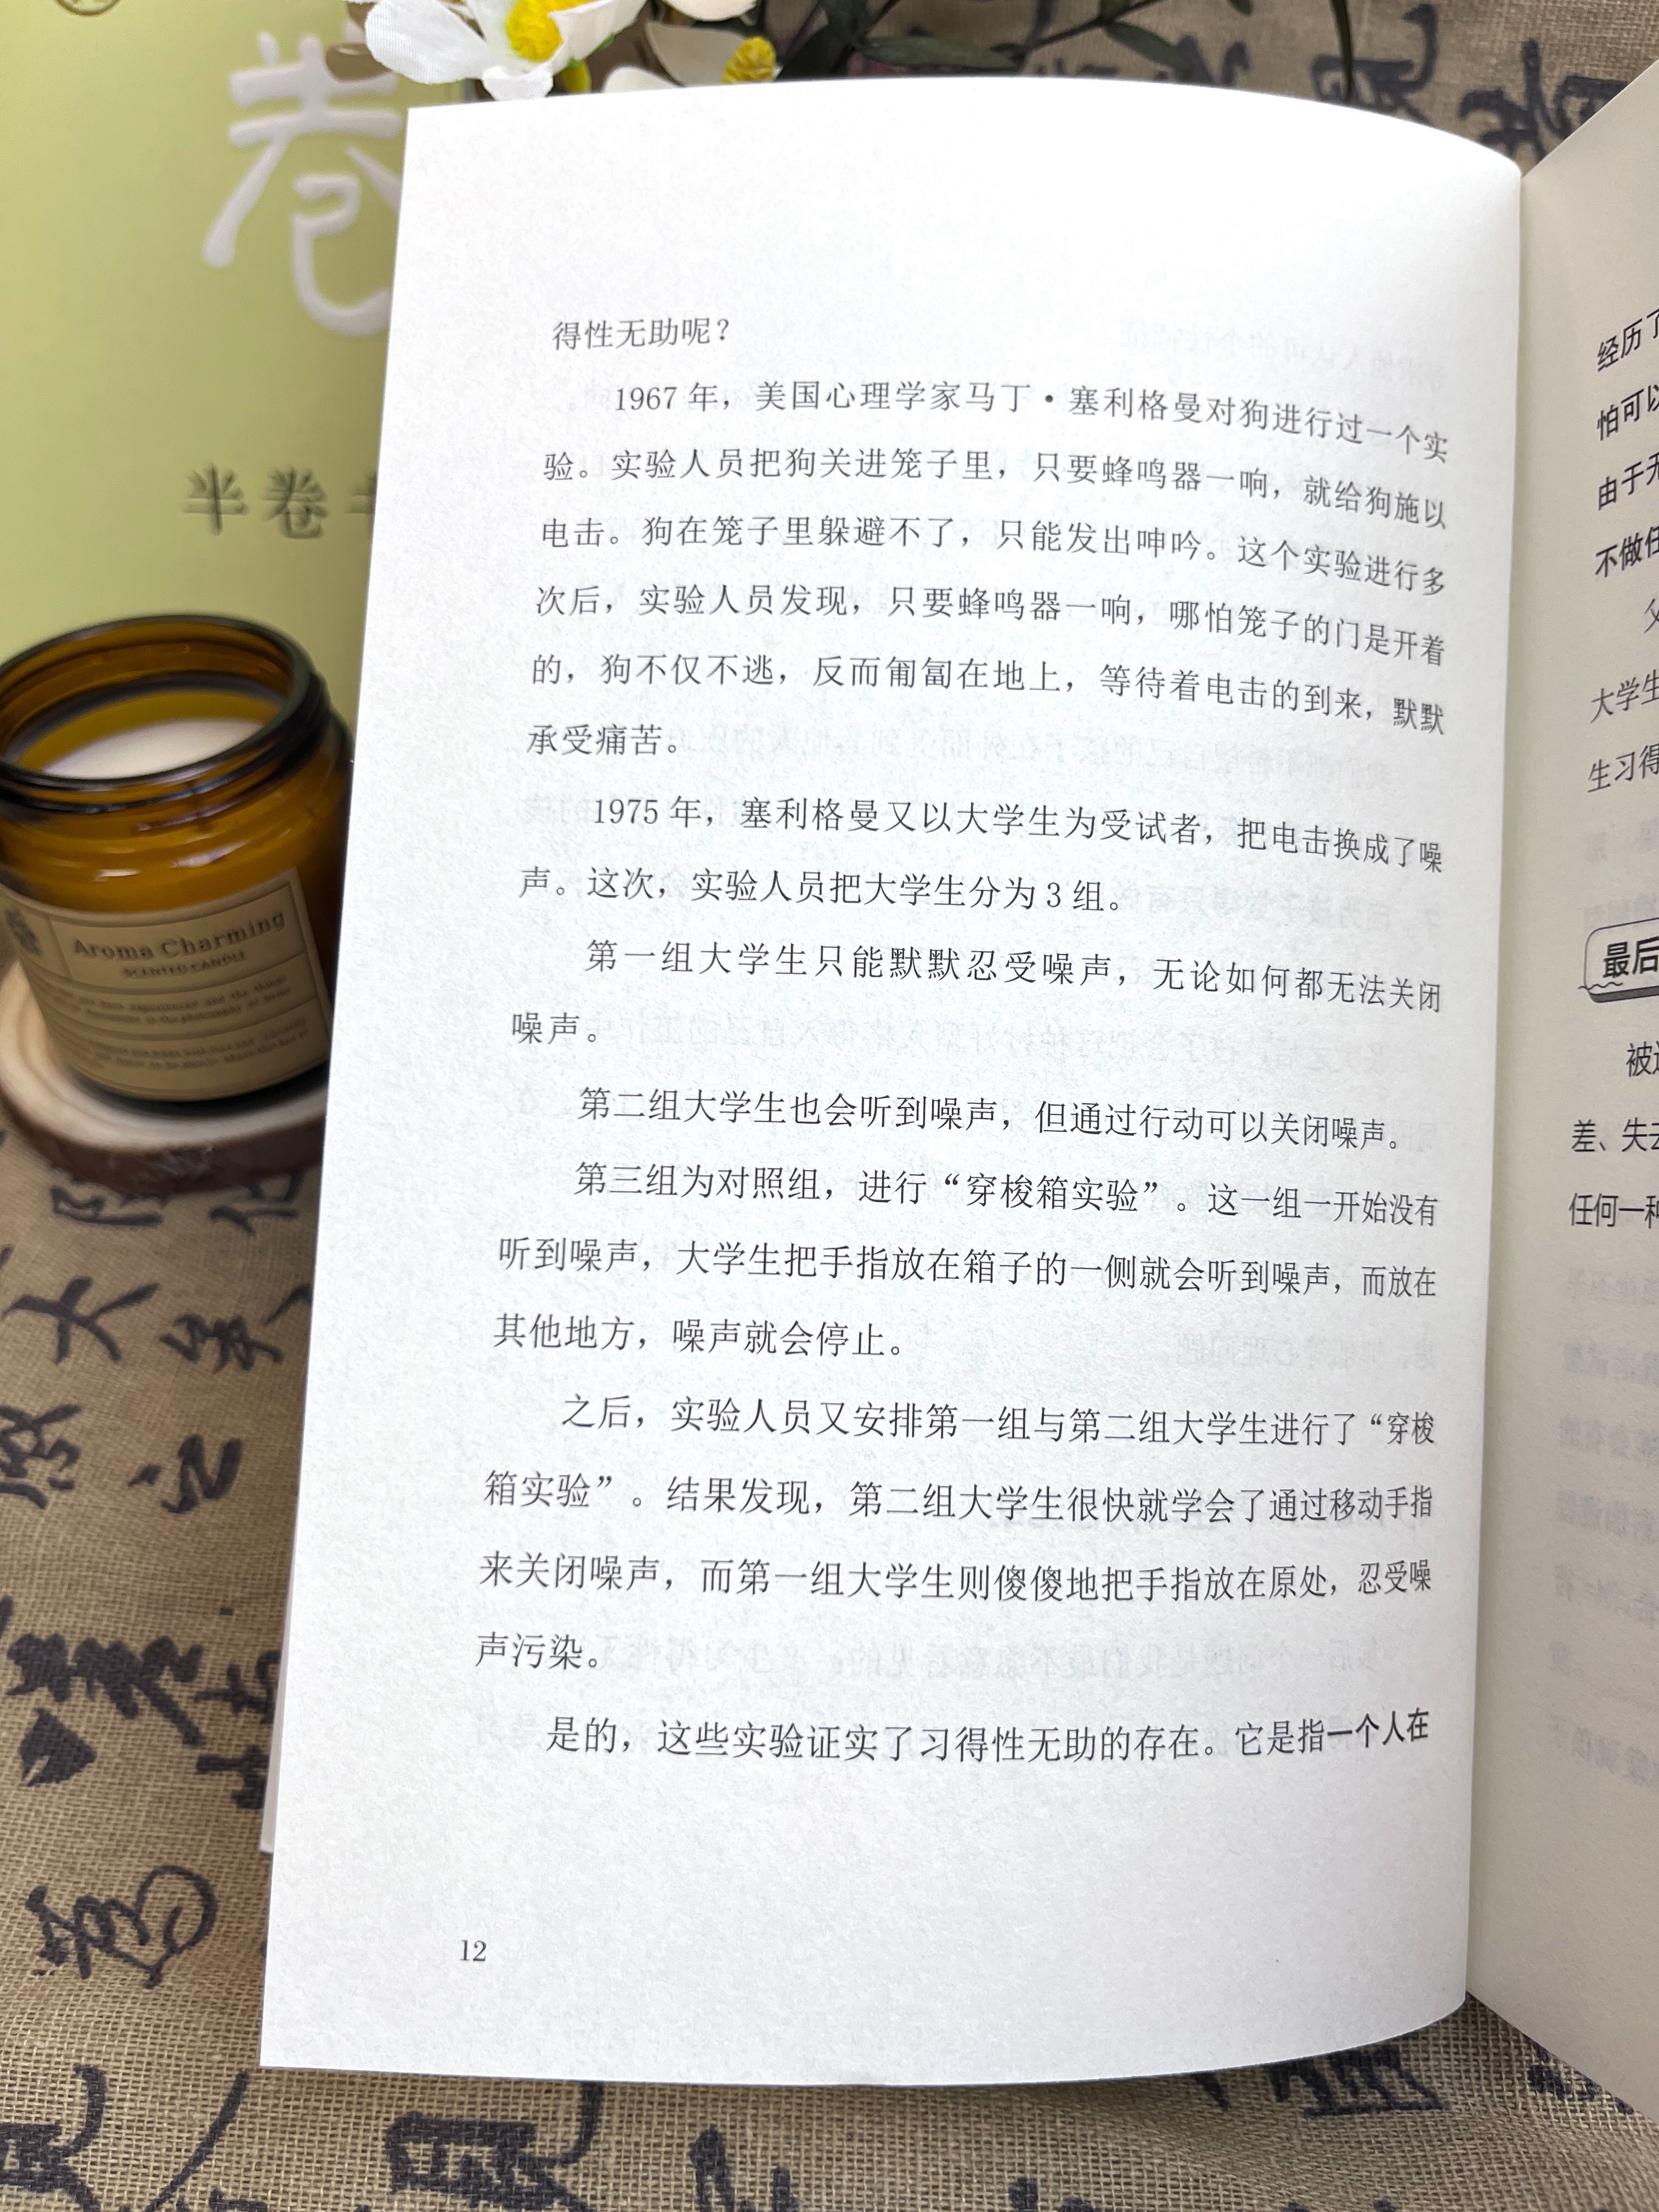 卷
半卷
Aroma Charming
SCENTED CANDLE
得性无助呢？
1967 年，美国心理学家马丁·塞利格曼对狗进行过一个实
验。实验人员把狗关进笼子里，只要蜂鸣器一响，就给狗施以
电击。狗在笼子里躲避不了，只能发出呻吟。这个实验进行多
次后，实验人员发现，只要蜂鸣器一响，哪怕笼子的门是开着
的，狗不仅不逃，反而匍匐在地上，等待着电击的到来，默默
承受痛苦。
1975 年，塞利格曼又以大学生为受试者，把电击换成了噪
声。这次，实验人员把大学生分为 3 组。
第一组大学生只能默默忍受噪声，无论如何都无法关闭
噪声。
第二组大学生也会听到噪声，但通过行动可以关闭噪声。
第三组为对照组，进行“穿梭箱实验”。这一组一开始没有
听到噪声，大学生把手指放在箱子的一侧就会听到噪声，而放在
其他地方，噪声就会停止。
之后，实验人员又安排第一组与第二组大学生进行了“穿梭
箱实验”。结果发现，第二组大学生很快就学会了通过移动手指
来关闭噪声，而第一组大学生则傻傻地把手指放在原处，忍受噪
声污染。
是的，这些实验证实了习得性无助的存在。它是指一个人在
12
经历了
怕可以
由于无
不做任
父
大学生
生习得
最后
被
差、失去
任何一种